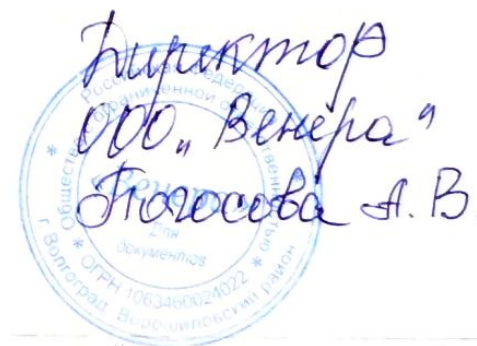 Директор
ООО „Венера"
Погосова А.В
Российская Федерация
Общество с ограниченной ответственностью
«Венера»
Для
документов
* ОГРН 1063460024022 *
г. Волгоград Ворошиловский район